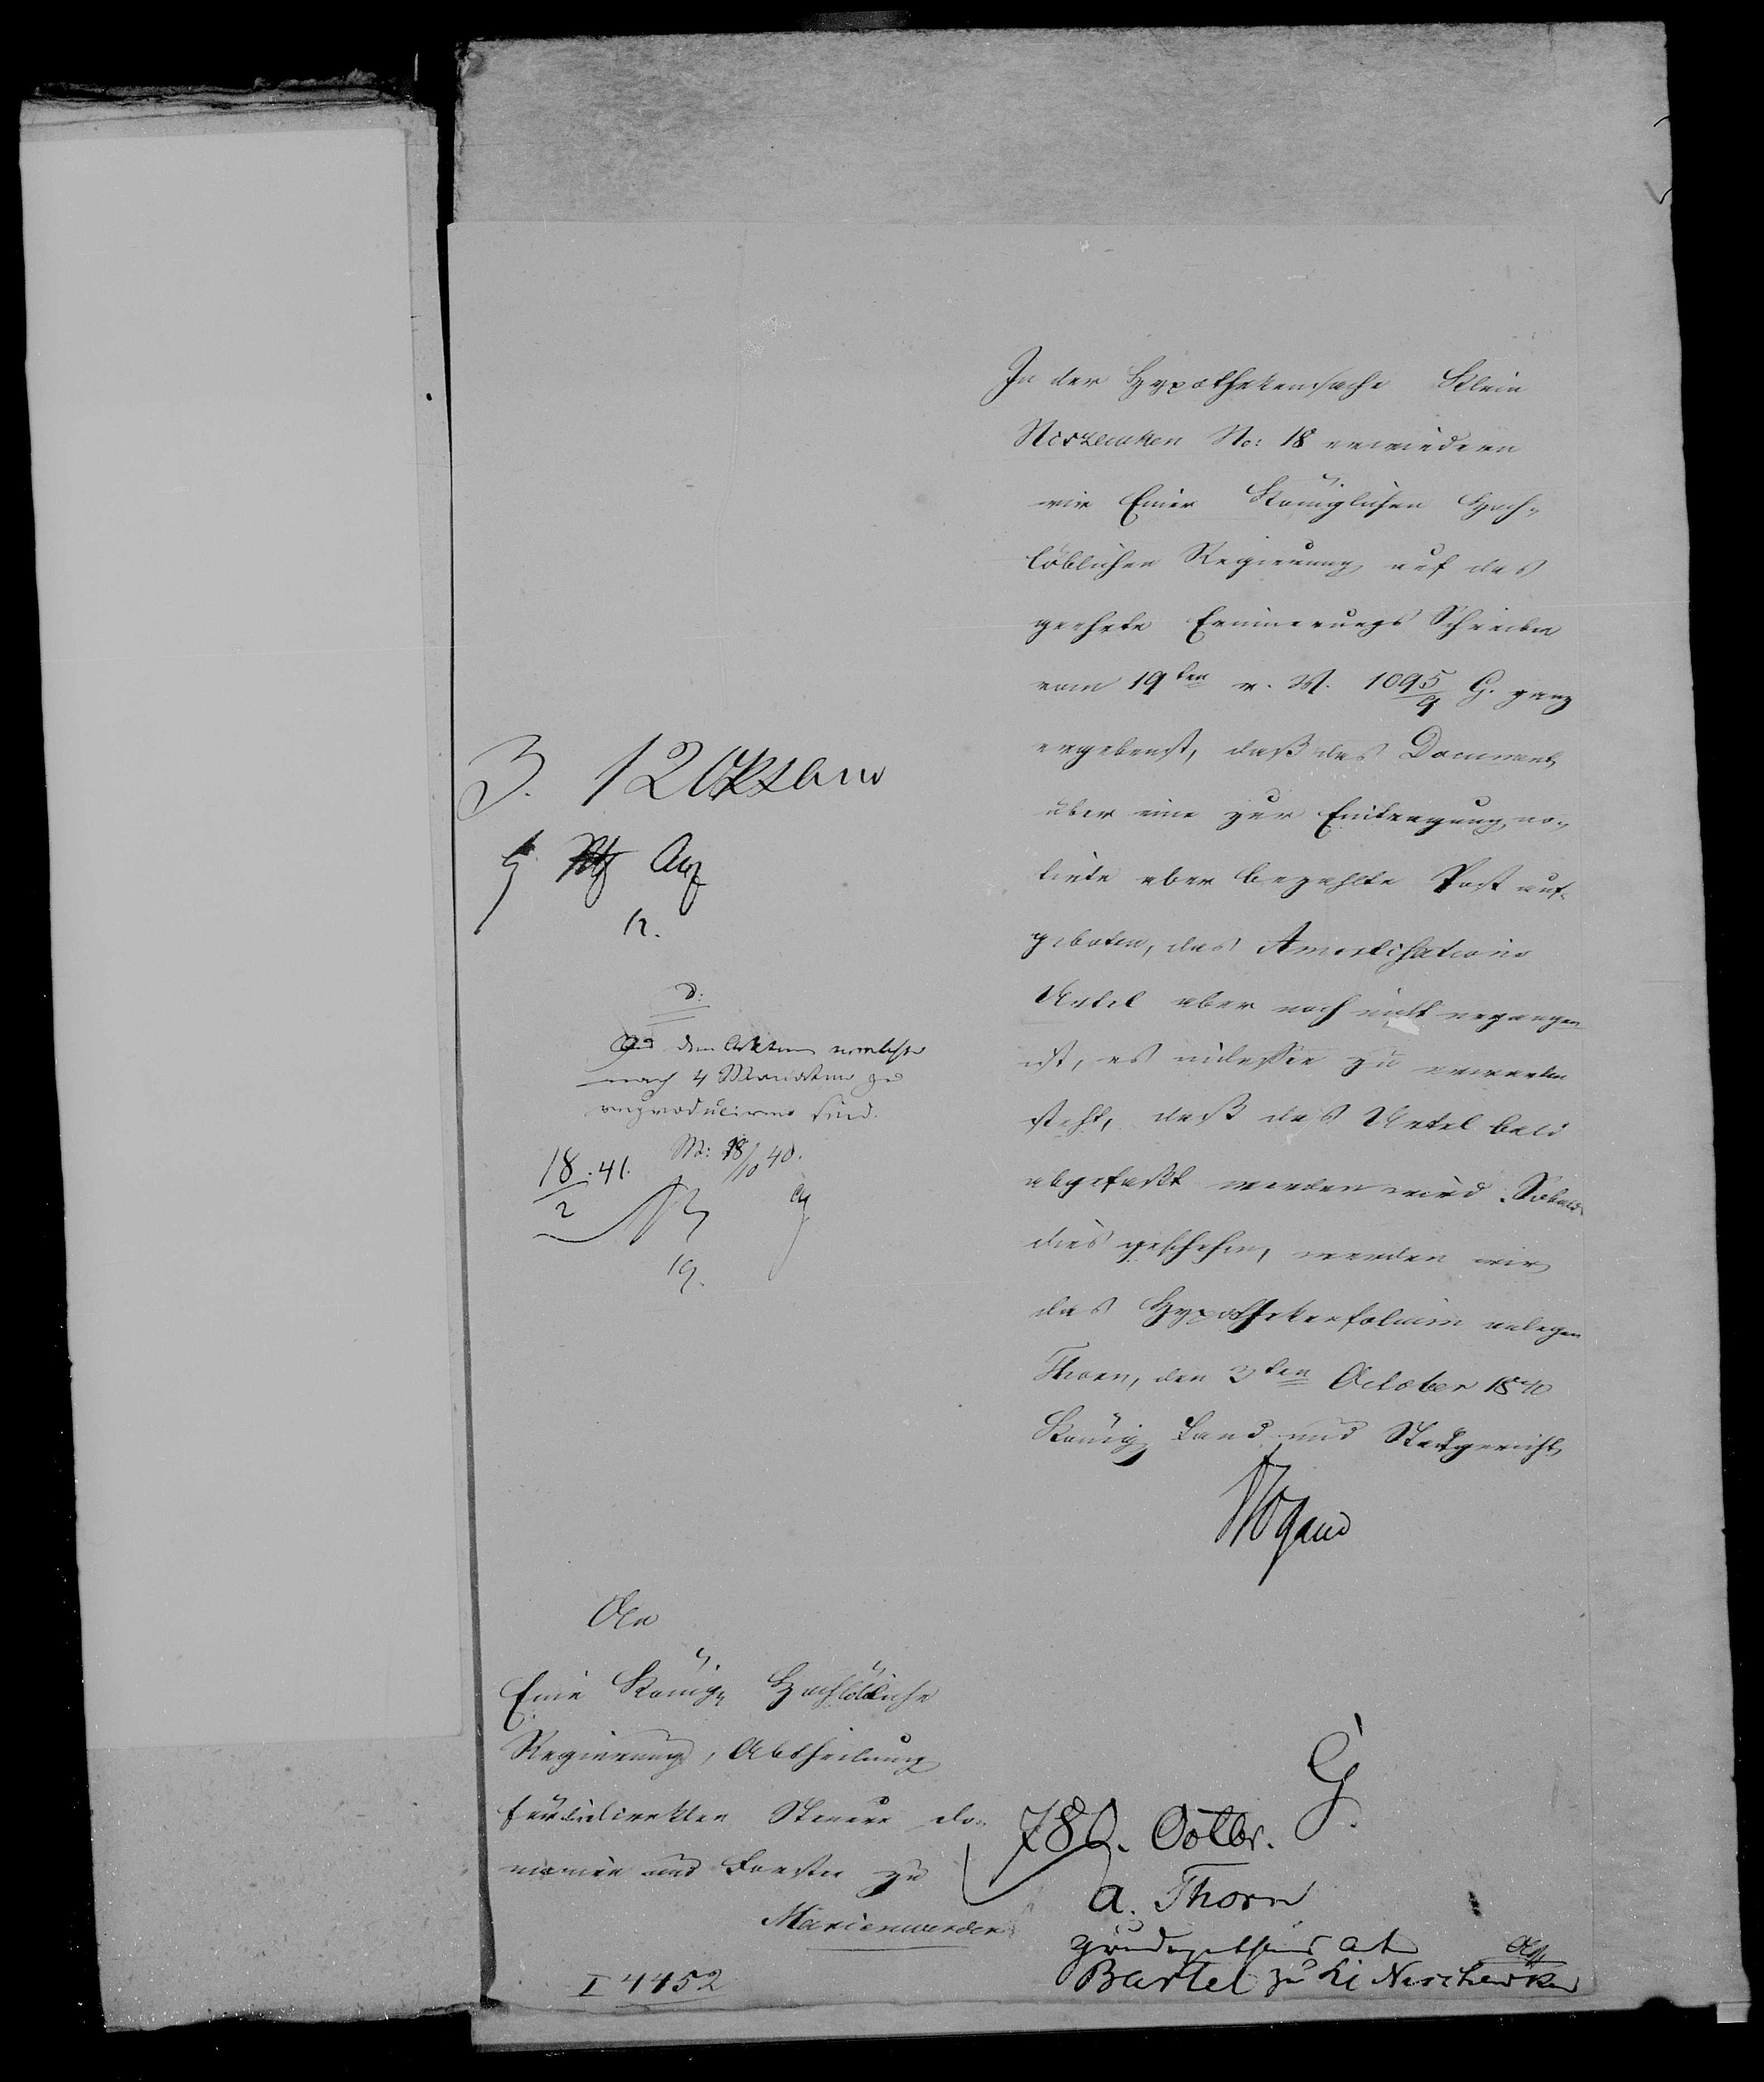 In der Hypothekensache Klein
Niszewken No: 18 erwiedern
wir Einer Königlichen Hoch-
löblichen Regierung auf das
geehrte Erinnerungs Schreiben
vom 19ten v. M. 1095/9 G. ganz
ergebenst, daß das Document
über eine zur Eintragung no-
tirte aber bezahlte Post auf-
geboten, das Amortisations
Urtel aber noch nicht ergangen
ist, es indessen zu erwarten
steht, daß das Urtel bald
abgefaßt werden wird. Sobald
dies geschehen, werden wir
das Hypothekenfolium anlegen
Thorn, den 3ten October 1840
Königl Land und Stadtgericht
3. 12
12.
den Akten
nach 4 Monaten zu
reproduciren sind.
18/10 40.
18/2 . 41.
19.
An
Eine Königl Hochlöbliche
Regierung, Abtheilung
für direkten Steuern Do-
mainen und Forsten zu
Marienwerder
I 4452
G.
780. Octbr.
a. Thorn
Bartel zu Kl Nischewken